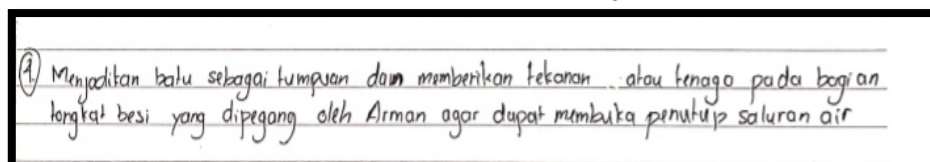 1. Menjadikan batu sebagai tumpuan dan memberikan tekanan atau tenaga pada bagian
tongkat besi yang dipegang oleh Arman agar dapat membuka penutup saluran air